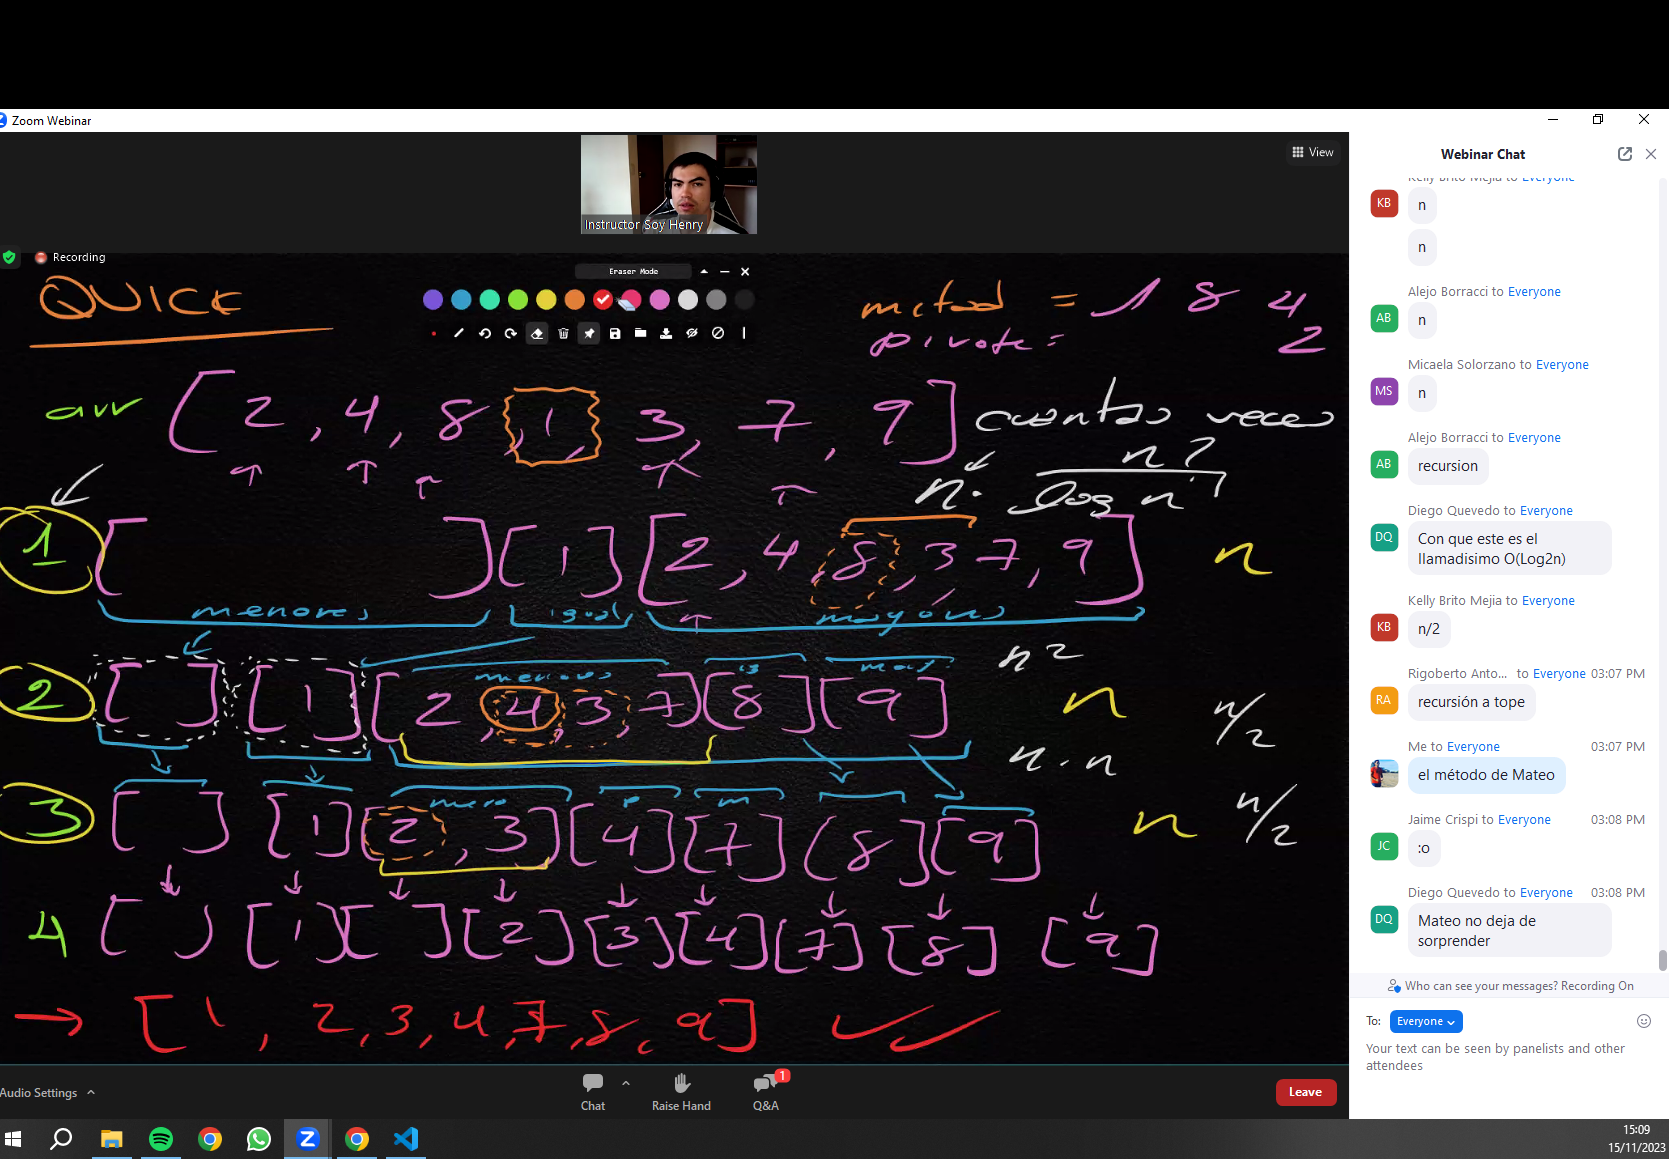 Zoom Webinar
View
Instructor Soy Henry
Recording
Eraser Mode
QUICK
= 1 8 4
pivote = 2
arr [2, 4, 8, 1, 3, 7, 9] cuantas veces
n?
n · log n?
1 [ ] [1] [2, 4, 8, 3, 7, 9] n
menores igual mayores
n2
2 [ ] [1] [2, 4, 3, 7] [8] [9] n n/2
menores
n · n
3 [ ] [1] [2, 3] [4] [7] [8] [9] n n/2
4 [ ] [1] [ ] [2] [3] [4] [7] [8] [9]
→ [1, 2, 3, 4, 7, 8, 9]
Audio Settings
Chat
Raise Hand
Q&A
1
Leave
Webinar Chat
Kelly Brito Mejia to Everyone
KB
n
n
Alejo Borracci to Everyone
AB
n
Micaela Solorzano to Everyone
MS
n
Alejo Borracci to Everyone
AB
recursion
Diego Quevedo to Everyone
DQ
Con que este es el
llamadisimo O(Log2n)
Kelly Brito Mejia to Everyone
KB
n/2
Rigoberto Anto... to Everyone 03:07 PM
RA
recursión a tope
Me to Everyone 03:07 PM
el método de Mateo
Jaime Crispi to Everyone 03:08 PM
JC
:o
Diego Quevedo to Everyone 03:08 PM
DQ
Mateo no deja de
sorprender
Who can see your messages? Recording On
To: Everyone
Your text can be seen by panelists and other
attendees
15:09
15/11/2023